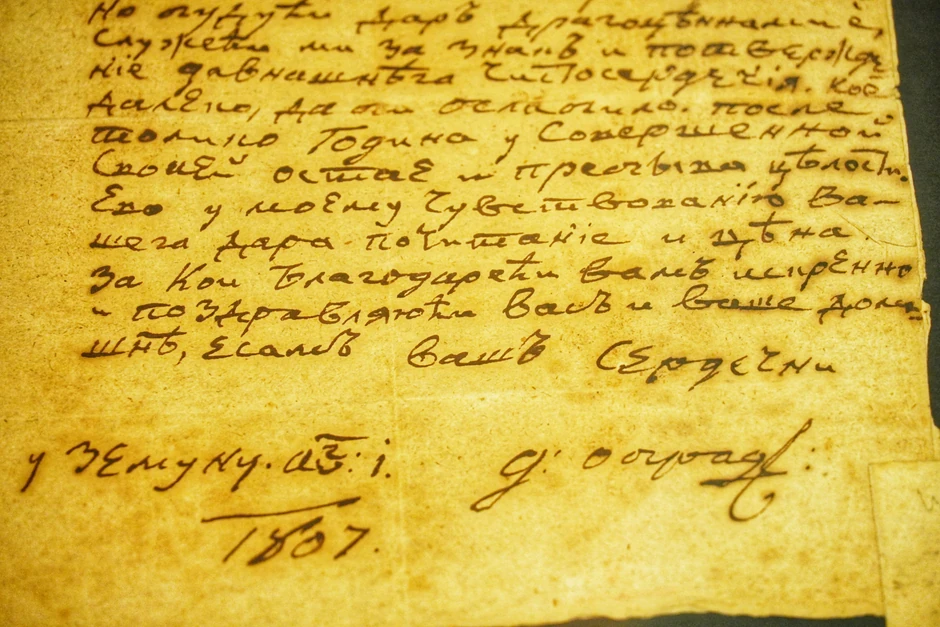 но будући даръ драгоцѣннѣише,
служећи ми за знакъ и потвержде
ніе давнашнѣга чистосердечія. кое
далеко, да би ослабило. после
толико година у совершенной
своей остае и пресъіва цѣлости.
Ево у моему чувствованію ва-
шега дара почитаніе и цѣна.
за кои благодарећи вамъ искренно
и поздравляюћи васъ и ваше дома-
шнѣ, есамъ вашъ сердечни
у Земуну.
1807.